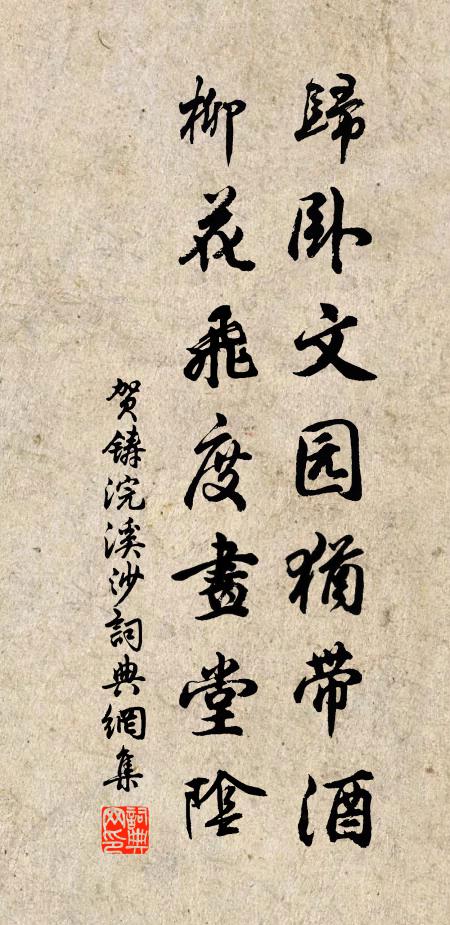 歸卧文园猶带酒
柳花飛度畫堂陰
贺鑄浣溪沙詞典網集
詞典网印